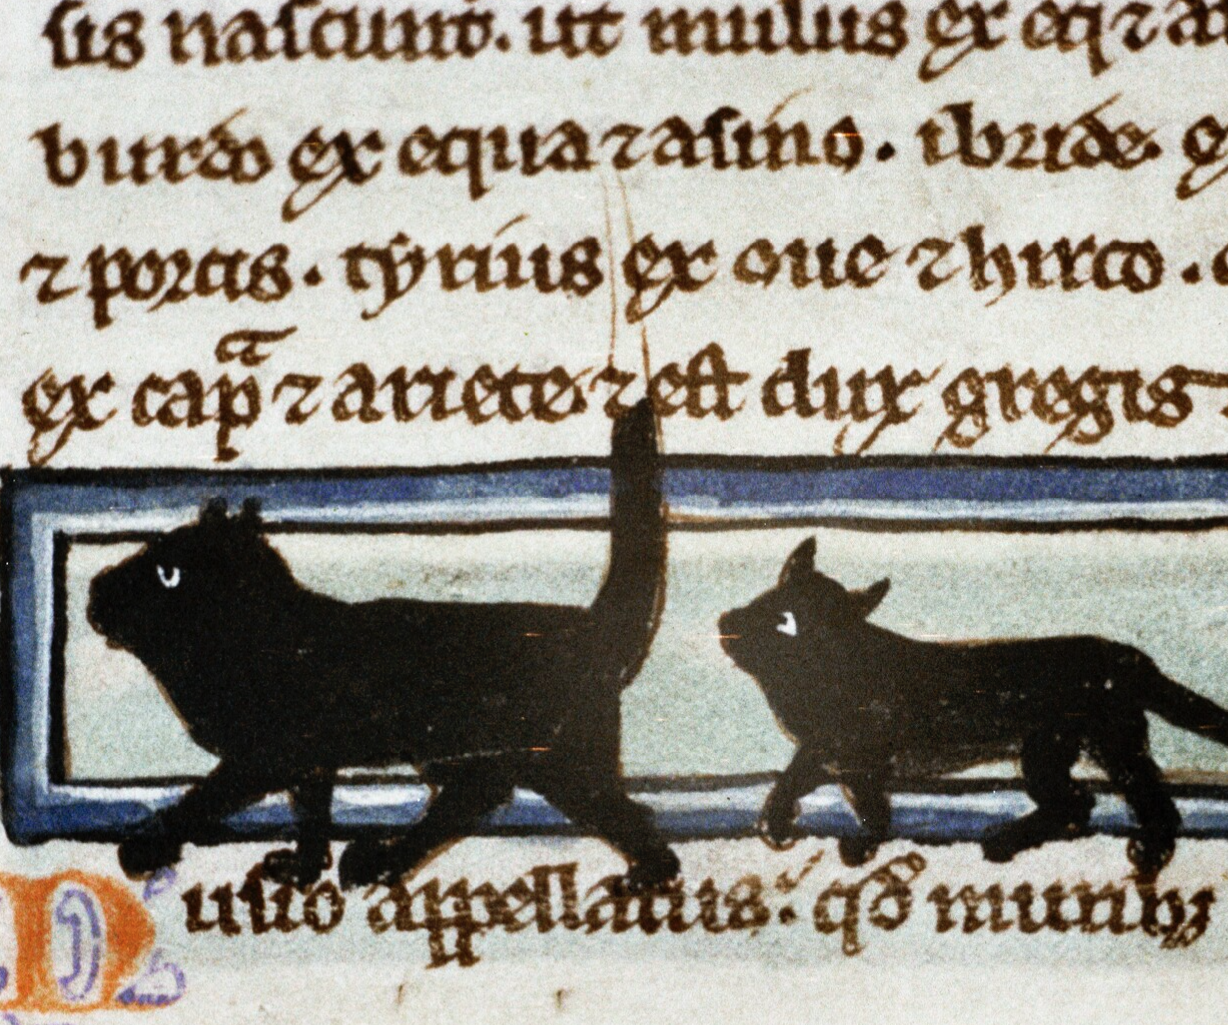 sis nascunt. ut mulus ex eq ⁊ a
burdo ex equa ⁊ asino. ibride e
⁊ porcis. tyrius ex oue ⁊ hirco. 
ex capᵃ ⁊ ariete ⁊ est dux gregis.
Musio appellatus: qđ muribꝫ